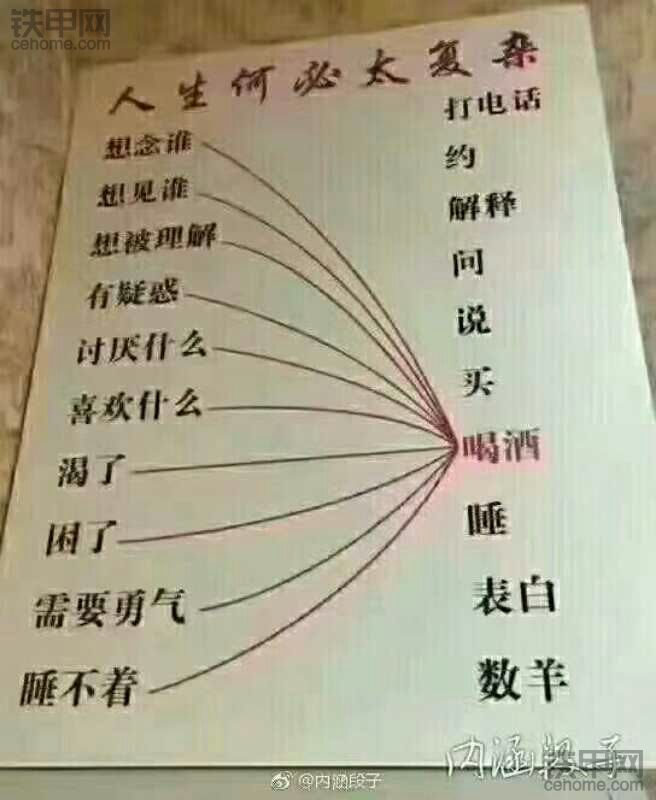 铁甲网
cehome.com
铁甲网
cehome.com
人生何必太复杂
想念谁
想见谁
想被理解
有疑惑
讨厌什么
喜欢什么
渴了
困了
需要勇气
睡不着
打电话
约
解释
问
说
买
喝酒
睡
表白
数羊
内涵段子
@内涵段子
铁甲网
cehome.com